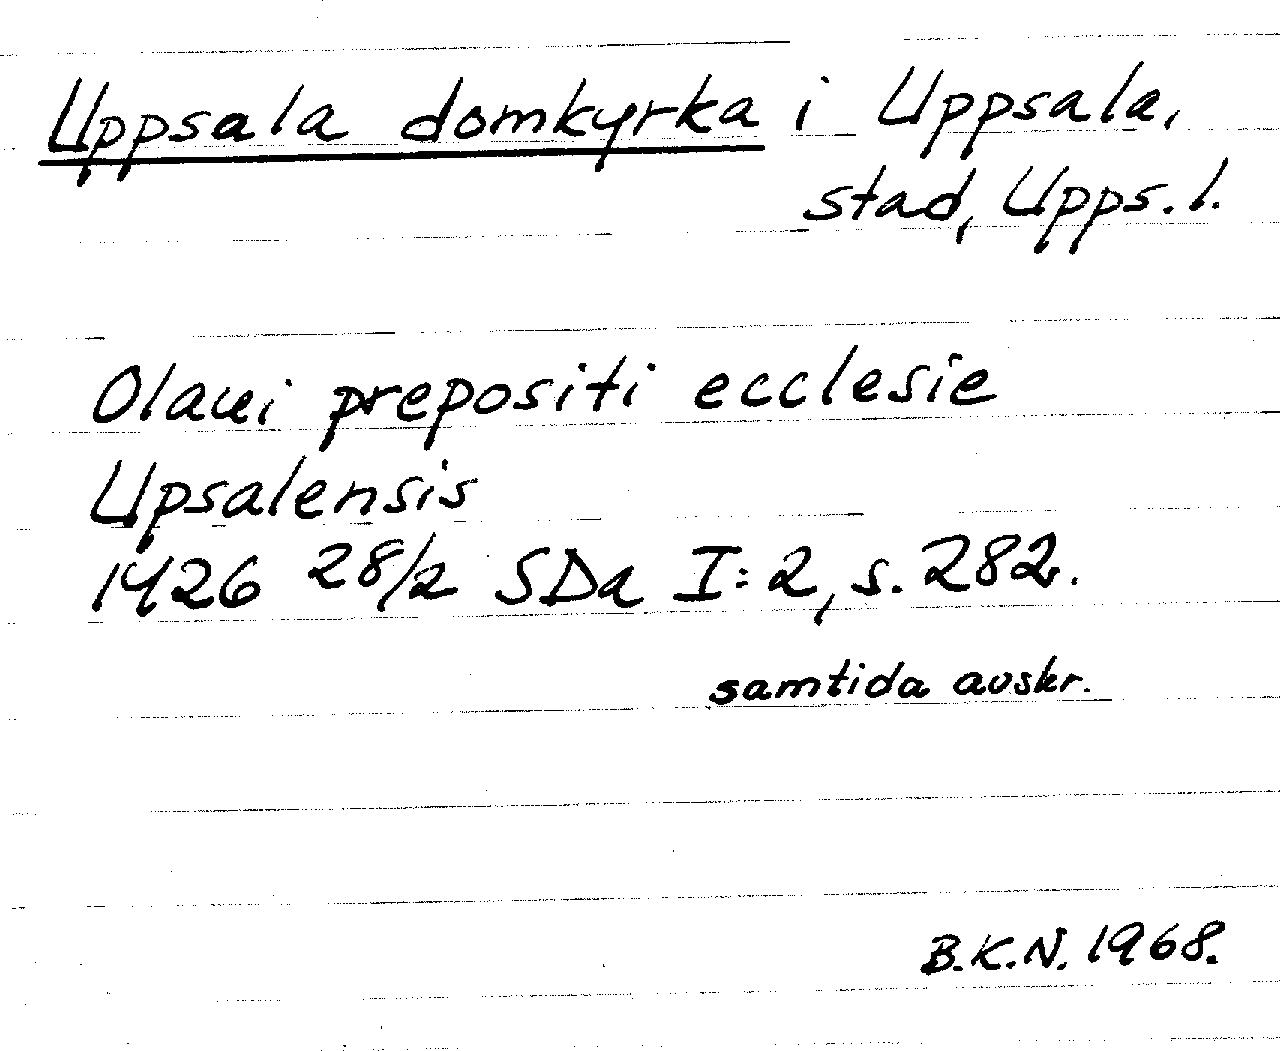 Uppsala domkyrka i Uppsala,
stad, Upps. l.
Olaui prepositi ecclesie
Upsalensis
1426 28/2 SDa I:2, s. 282.
samtida avskr.
B.K.N. 1968.